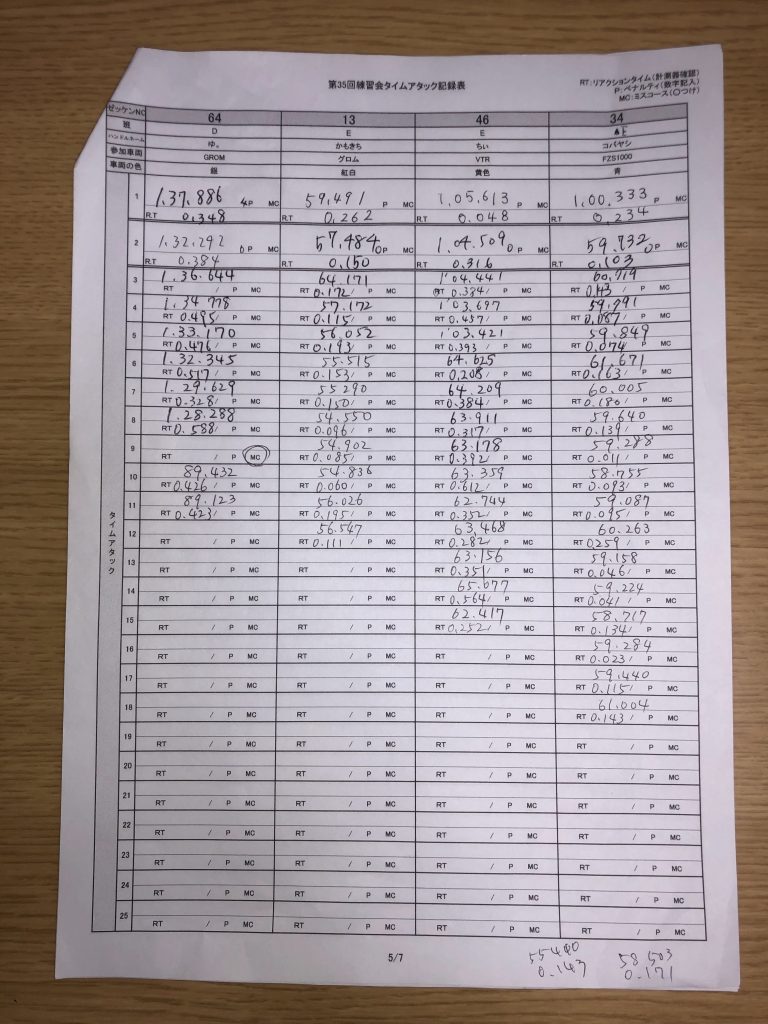 第35回練習会タイムアタック記録表
RT:リアクションタイム(計測器確認)
P:ペナルティ(数字記入)
MC:ミスコース(〇つけ)
ゼッケンNO 64 13 46 34
班 D E E E
ハンドルネーム ゆ。 かもきち ちぃ コバヤシ
参加車両 GROM グロム VTR FZS1000
車両の色 銀 紅白 黄色 青
タイムアタック
1 1,37.886 4P MC 59,491 P MC 1,05,613 P MC 1,00,333 P MC
R.T 0,348 R.T 0,262 R.T 0.048 R.T 0,234
2 1.32.292 0P MC 57,484 0P MC 1,04.509 0P MC 59,732 0P MC
R.T 0.384 R.T 0,150 R.T 0.316 R.T 0,103
3 1.36.644 64.171 1'04.441 60.719
RT / P MC RT 0.172/ P MC RT 0.384/ P MC RT 0.143/ P MC
4 1.34.778 57.172 1'03.697 59.791
RT 0.495/ P MC RT 0.115/ P MC RT 0.457/ P MC RT 0.087/ P MC
5 1.33.170 56.052 1'03.421 59.849
RT 0.476/ P MC RT 0.193/ P MC RT 0.393/ P MC RT 0.074/ P MC
6 1.32.345 55.515 64.625 61.671
RT 0.517/ P MC RT 0.153/ P MC RT 0.208/ P MC RT 0.163/ P MC
7 1.29.629 55290 64.209 60.005
RT 0.328/ P MC RT 0.150/ P MC RT 0.384/ P MC RT 0.180/ P MC
8 1.28.288 54.550 63.911 59.640
RT 0.588/ P MC RT 0.096/ P MC RT 0.317/ P MC RT 0.139/ P MC
9 54.902 63.178 59.288
RT / P MC RT 0.085/ P MC RT 0.392/ P MC RT 0.011/ P MC
10 89,432 54.836 63.359 58.755
RT 0.426/ P MC RT 0.060/ P MC RT 0.612/ P MC RT 0.093/ P MC
11 89.123 56.026 62.744 59.087
RT 0.423/ P MC RT 0.195/ P MC RT 0.352/ P MC RT 0.095/ P MC
12 56.547 63.468 60.263
RT / P MC RT 0.111/ P MC RT 0.282/ P MC RT 0259/ P MC
13 63.156 59.158
RT / P MC RT / P MC RT 0.351/ P MC RT 0.046/ P MC
14 65.077 59.224
RT / P MC RT / P MC RT 0.564/ P MC RT 0.041/ P MC
15 62.417 58.717
RT / P MC RT / P MC RT 0.252/ P MC RT 0.134/ P MC
16 59.284
RT / P MC RT / P MC RT / P MC RT 0.023/ P MC
17 59.440
RT / P MC RT / P MC RT / P MC RT 0.115/ P MC
18 61.004
RT / P MC RT / P MC RT / P MC RT 0.143/ P MC
19
RT / P MC RT / P MC RT / P MC RT / P MC
20
RT / P MC RT / P MC RT / P MC RT / P MC
21
RT / P MC RT / P MC RT / P MC RT / P MC
22
RT / P MC RT / P MC RT / P MC RT / P MC
23
RT / P MC RT / P MC RT / P MC RT / P MC
24
RT / P MC RT / P MC RT / P MC RT / P MC
25
RT / P MC RT / P MC RT / P MC RT / P MC
5/7
55400 58.503
0.143 0.171